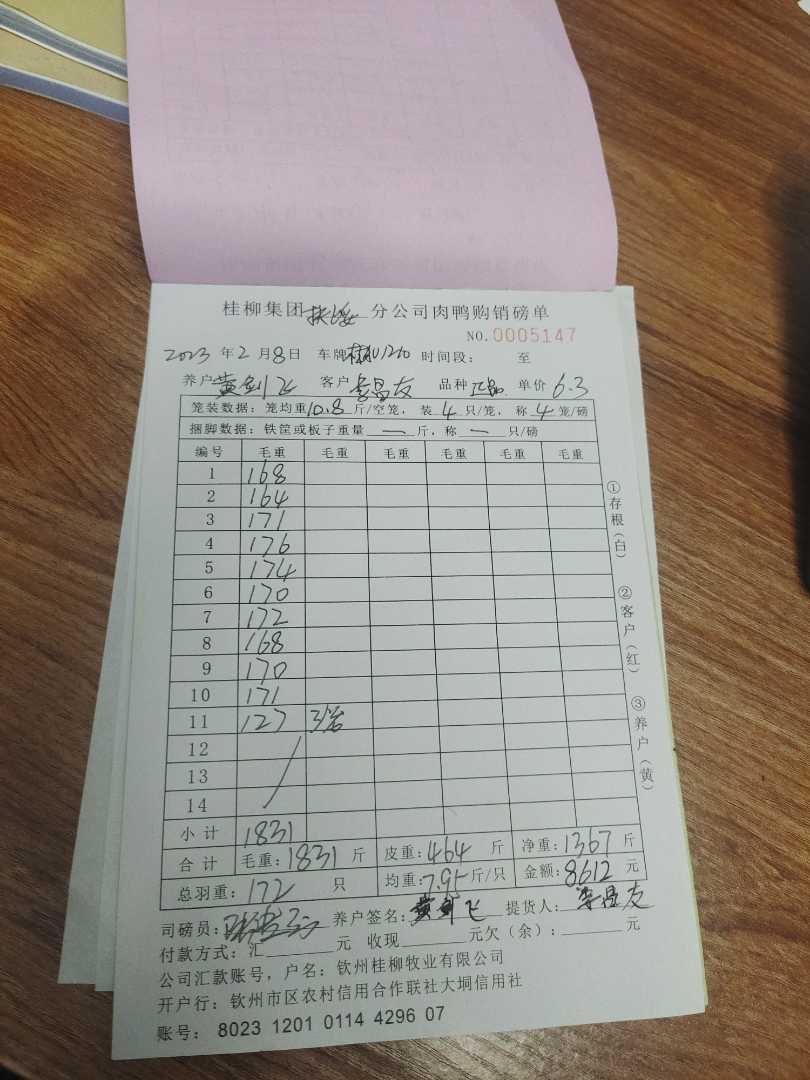 桂柳集团扶绥分公司肉鸭购销磅单
NO.0005147
2023年2月8日 车牌 时间段： 至
养户黄剑飞 客户李昌友 品种正品 单价6.3
笼装数据：笼均重10.8斤/空笼，装4只/笼，称4笼/磅
捆脚数据：铁筐或板子重量一斤，称一只/磅
编号 毛重 毛重 毛重 毛重 毛重 毛重
1 168
2 164
3 171
4 176
5 174
6 170
7 172
8 168
9 170
10 171
11 127 3笼
12
13
14
小计 1831
合计 毛重：1831斤 皮重：464斤 净重：1367斤
总羽重：172只 均重：7.95斤/只 金额：8612元
司磅员： 养户签名：黄剑飞 提货人：李昌友
付款方式：汇____元 收现____元欠（余）：____元
公司汇款账号，户名：钦州桂柳牧业有限公司
开户行：钦州市区农村信用合作联社大垌信用社
账号：8023 1201 0114 4296 07
①存根（白）
②客户（红）
③养户（黄）